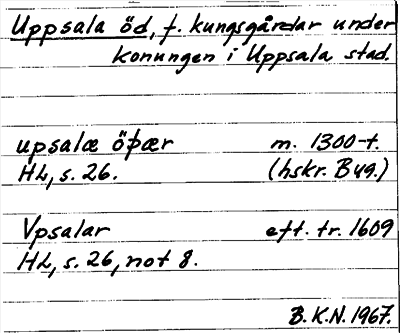 Uppsala öd, f. kungsgårdar under
konungen i Uppsala stad.
upsalæ öþær m. 1300-t.
HL, s. 26. (hskr. B ug.)
Vpsalar eft. tr. 1609
HL, s. 26, not 8.
B.K.N. 1967.